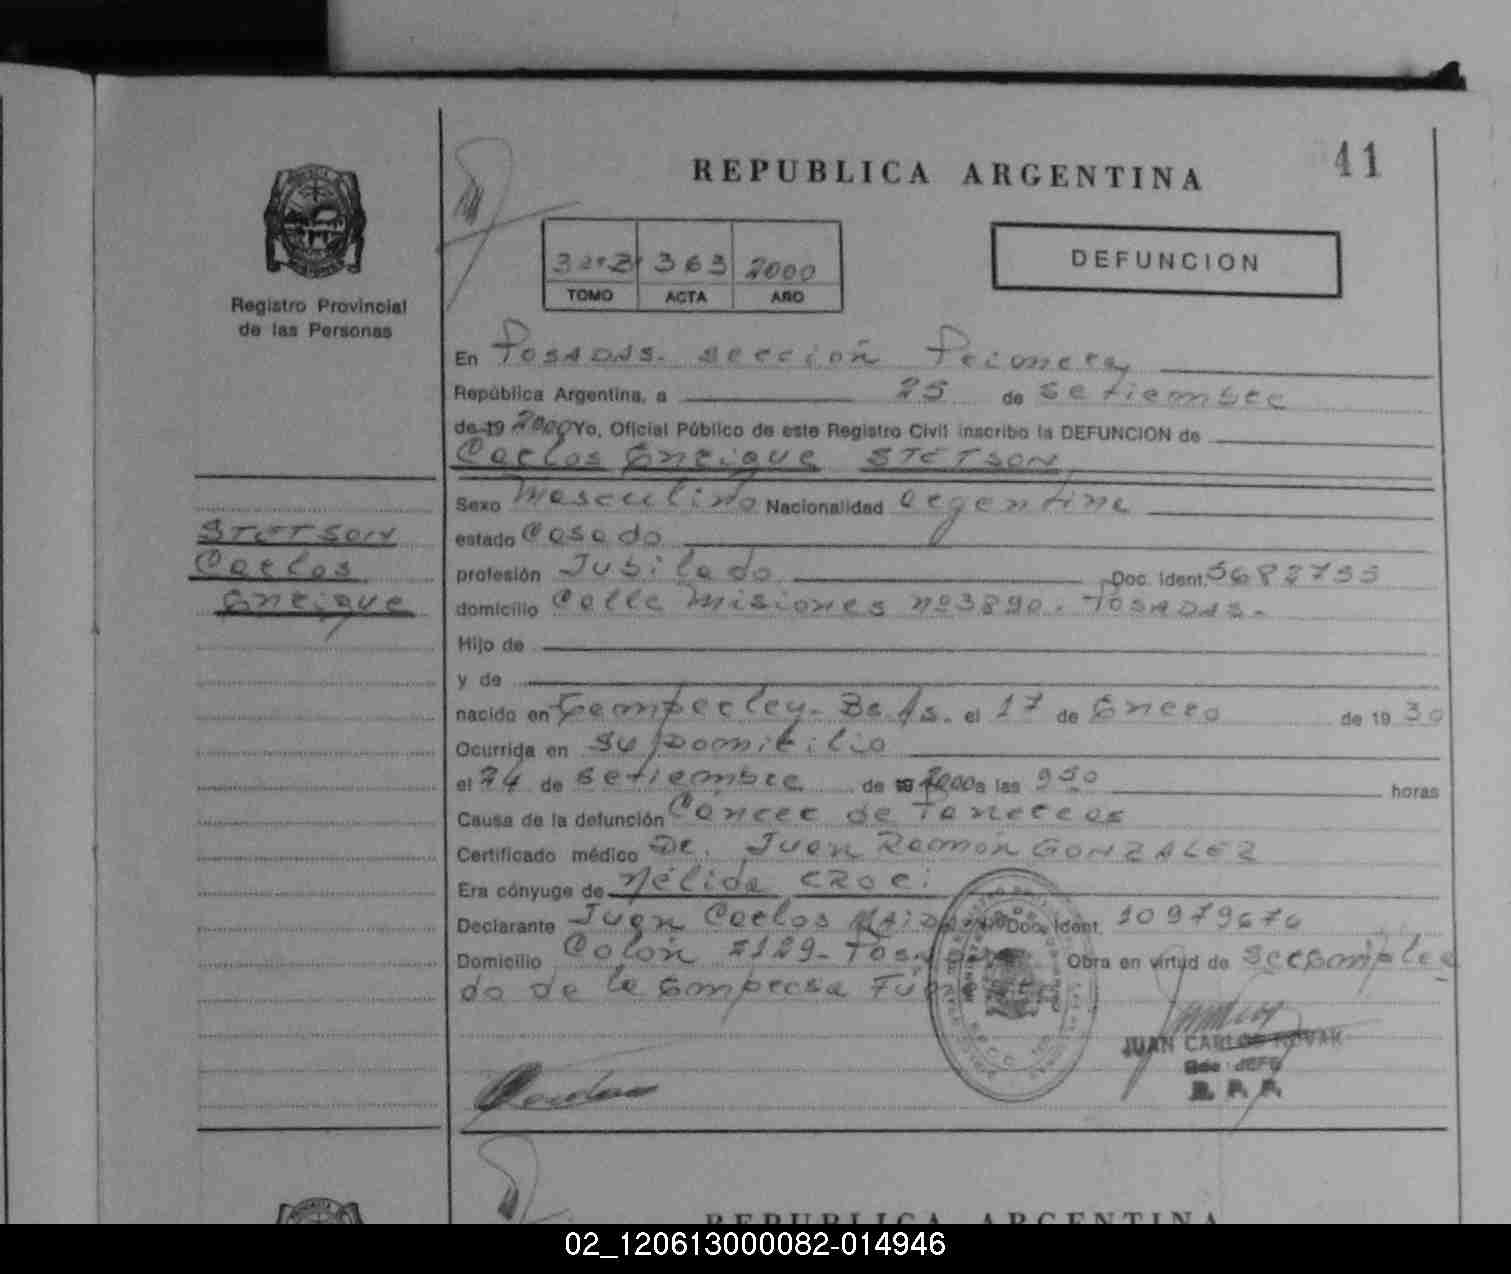 41
REPUBLICA ARGENTINA
DEFUNCION
363 2000
TOMO ACTA AÑO
Registro Provincial
de las Personas
En Posadas. sección Primera
República Argentina, a 25 de Setiembre
de 19 2000 Yo, Oficial Público de este Registro Civil inscribo la DEFUNCION de
Carlos Enrique STETSON
STETSON
Carlos
Enrique
Sexo Masculino Nacionalidad argentina
estado Casado
profesión Jubilado Doc. Ident. 5682755
domicilio Calle Misiones nº 3890. POSADAS.
Hijo de
y de
nacido en Temperley - Bs As. el 17 de Enero de 19 30
Ocurrida en su Domicilio
el 24 de Setiembre de 19 2000 a las 950 horas
Causa de la defunción Cáncer de Páncreas
Certificado médico Dr. Juan Ramón GONZALEZ
Era cónyuge de Nélida CROCI
Declarante Juan Carlos Doc. Ident. 10979676
Domicilio Colón 2129 - Posadas Obra en virtud de ser emplea
do de la Empresa
JUAN CARLOS
JEFE
REPUBLICA ARGENTINA
02_120613000082-014946